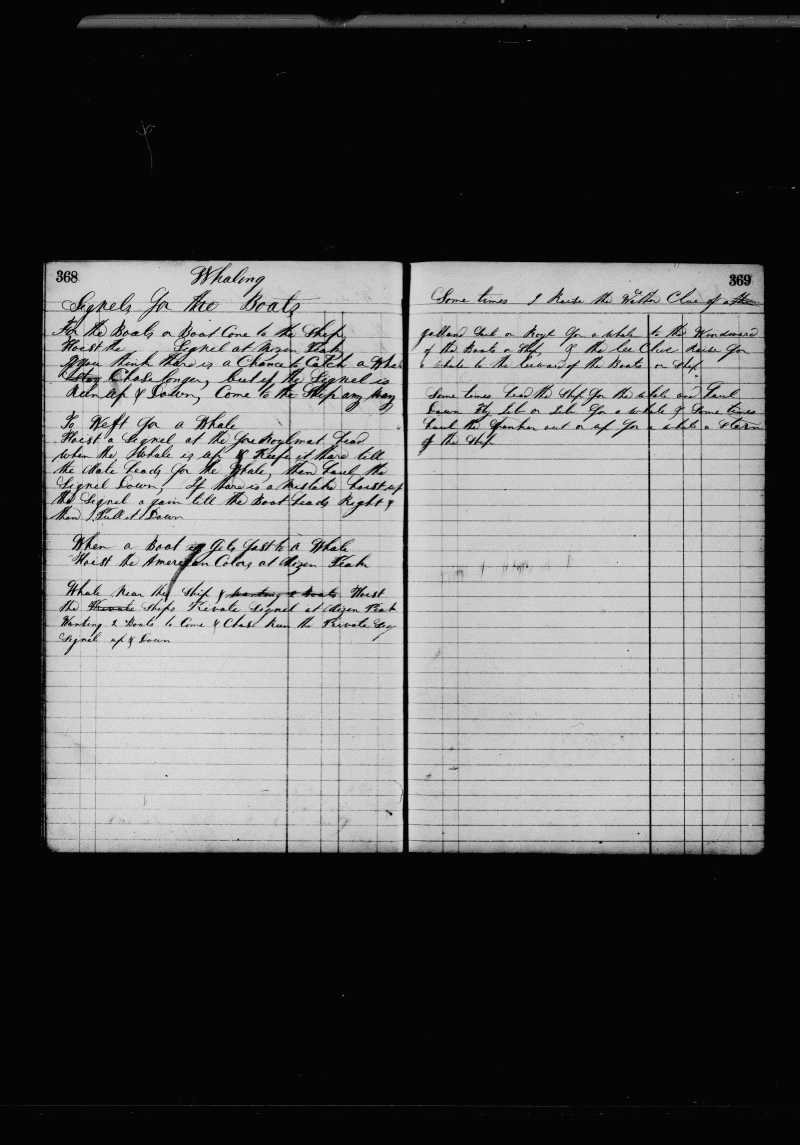 368
Whaling
Signels for the Boats
For the Boats or Boat Come to the Ship
Hoist the Signel at Mizen Peak
if you think thare is a Chance to Catch a Whale
Stay Chase longer, but if the Signel is
Run up & Down, Come to the Ship any way
To Weft for a Whale
Hoist a Signel at the fore Royl mat head
when the Whale is up & Keepe it thare till
the Mate heads for the Whale, then haul the
Signel Down, If thare is a Mistake hoist up
the Signel a gain till the Boat heads Right &
then I Pull it Down
When a Boat is Gets fast to a Whale
Hoist the American Colors at Mizen Peak
Whale Near the Ship & wanting 2 Boats Hoist
the Private Ships Private Signel at Mizen Peak
Wanting 2 Boats to Come & Chase Run the Private Sig
Signel up & Down
369
Some times I Raise the Wether Clue of a
gallant Sail or Royl for a whale to the Windward
of the Boats or Ship, & the lee Clue Raise for
a whale to the leeward of the Boats or Ship
Some times head the Ship for the whale and haul
Down Fly Jib or Jibs for a whale & Some times
haul the Spanker out or up for a whale a Stern
of the Ship